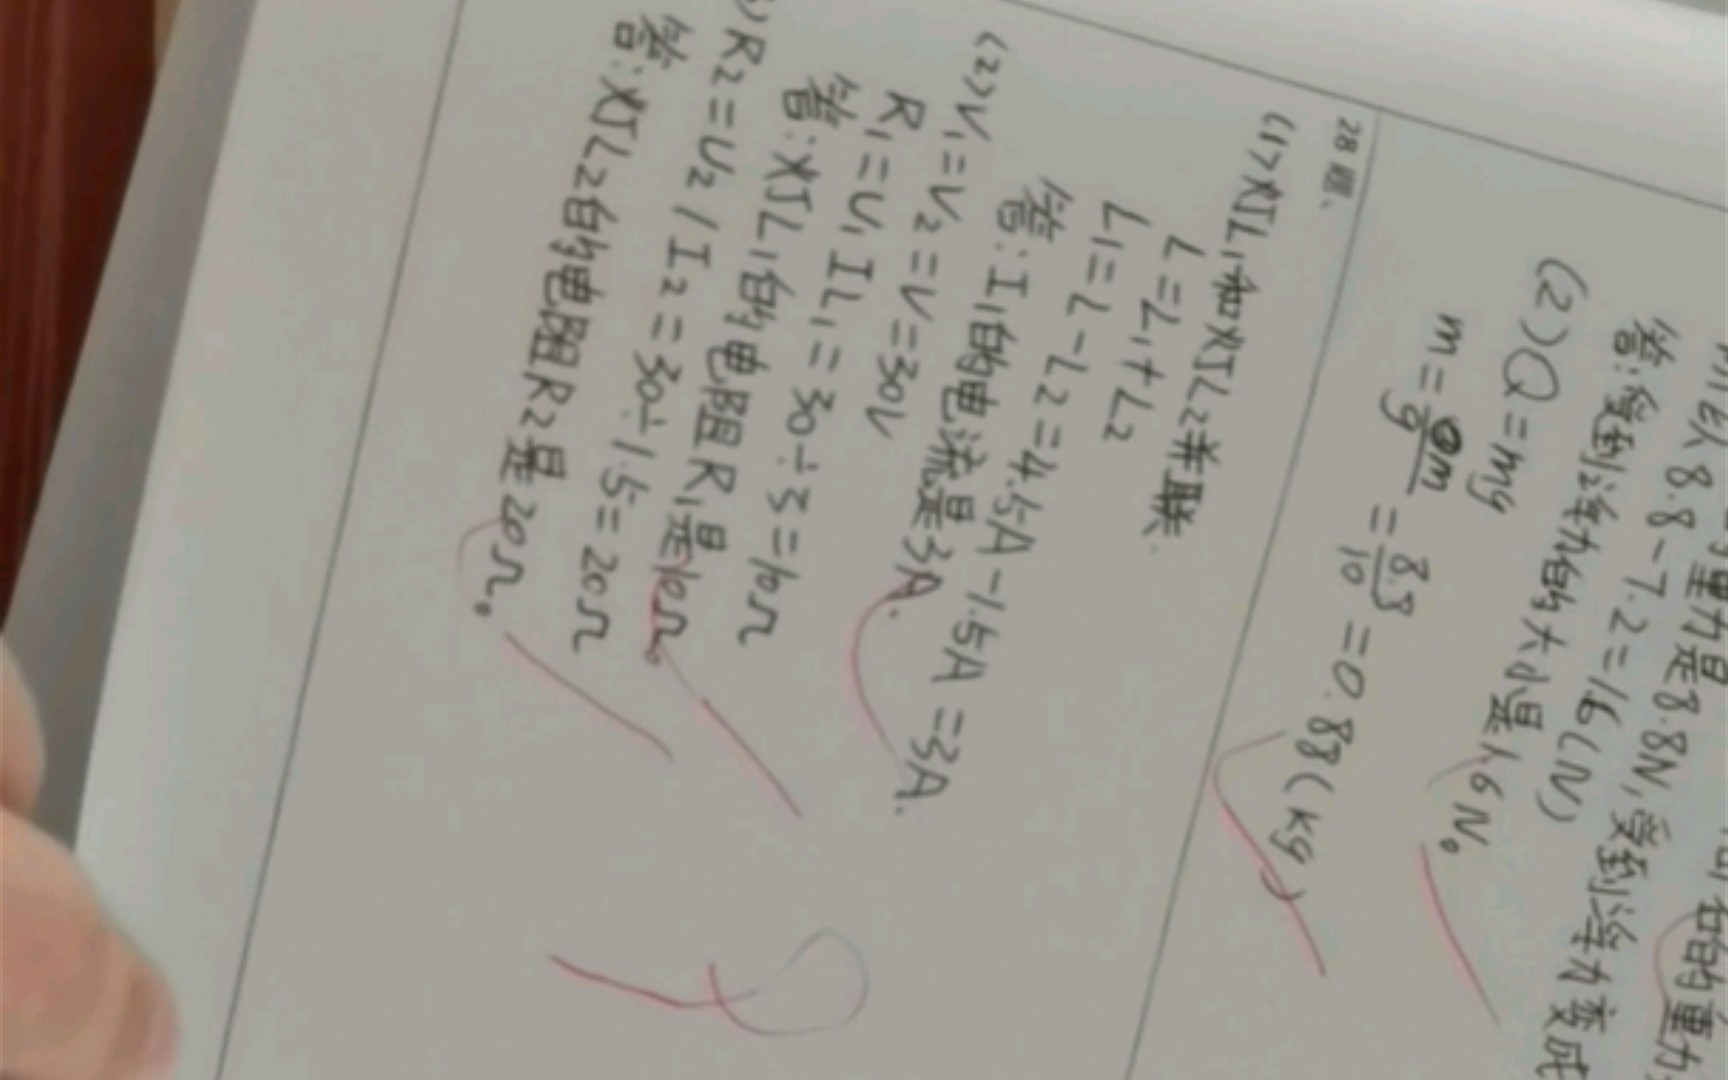 所以8.8-7.2=1.6(N)
答:受到浮力的大小是1.6N。
(2)Q=mg
m=Qm/g=8.8/10=0.88(kg)
28题、
(1)灯L1和灯L2并联.
L=L1+L2
L1=L-L2=4.5A-1.5A=3A.
答:I1的电流是3A.
(2)V1=V2=V=30V
R1=U1IL1=30÷3=10Ω
答:灯L1的电阻R1是10Ω。
R2=U2/I2=30÷1.5=20Ω
答:灯L2的电阻R2是20Ω。